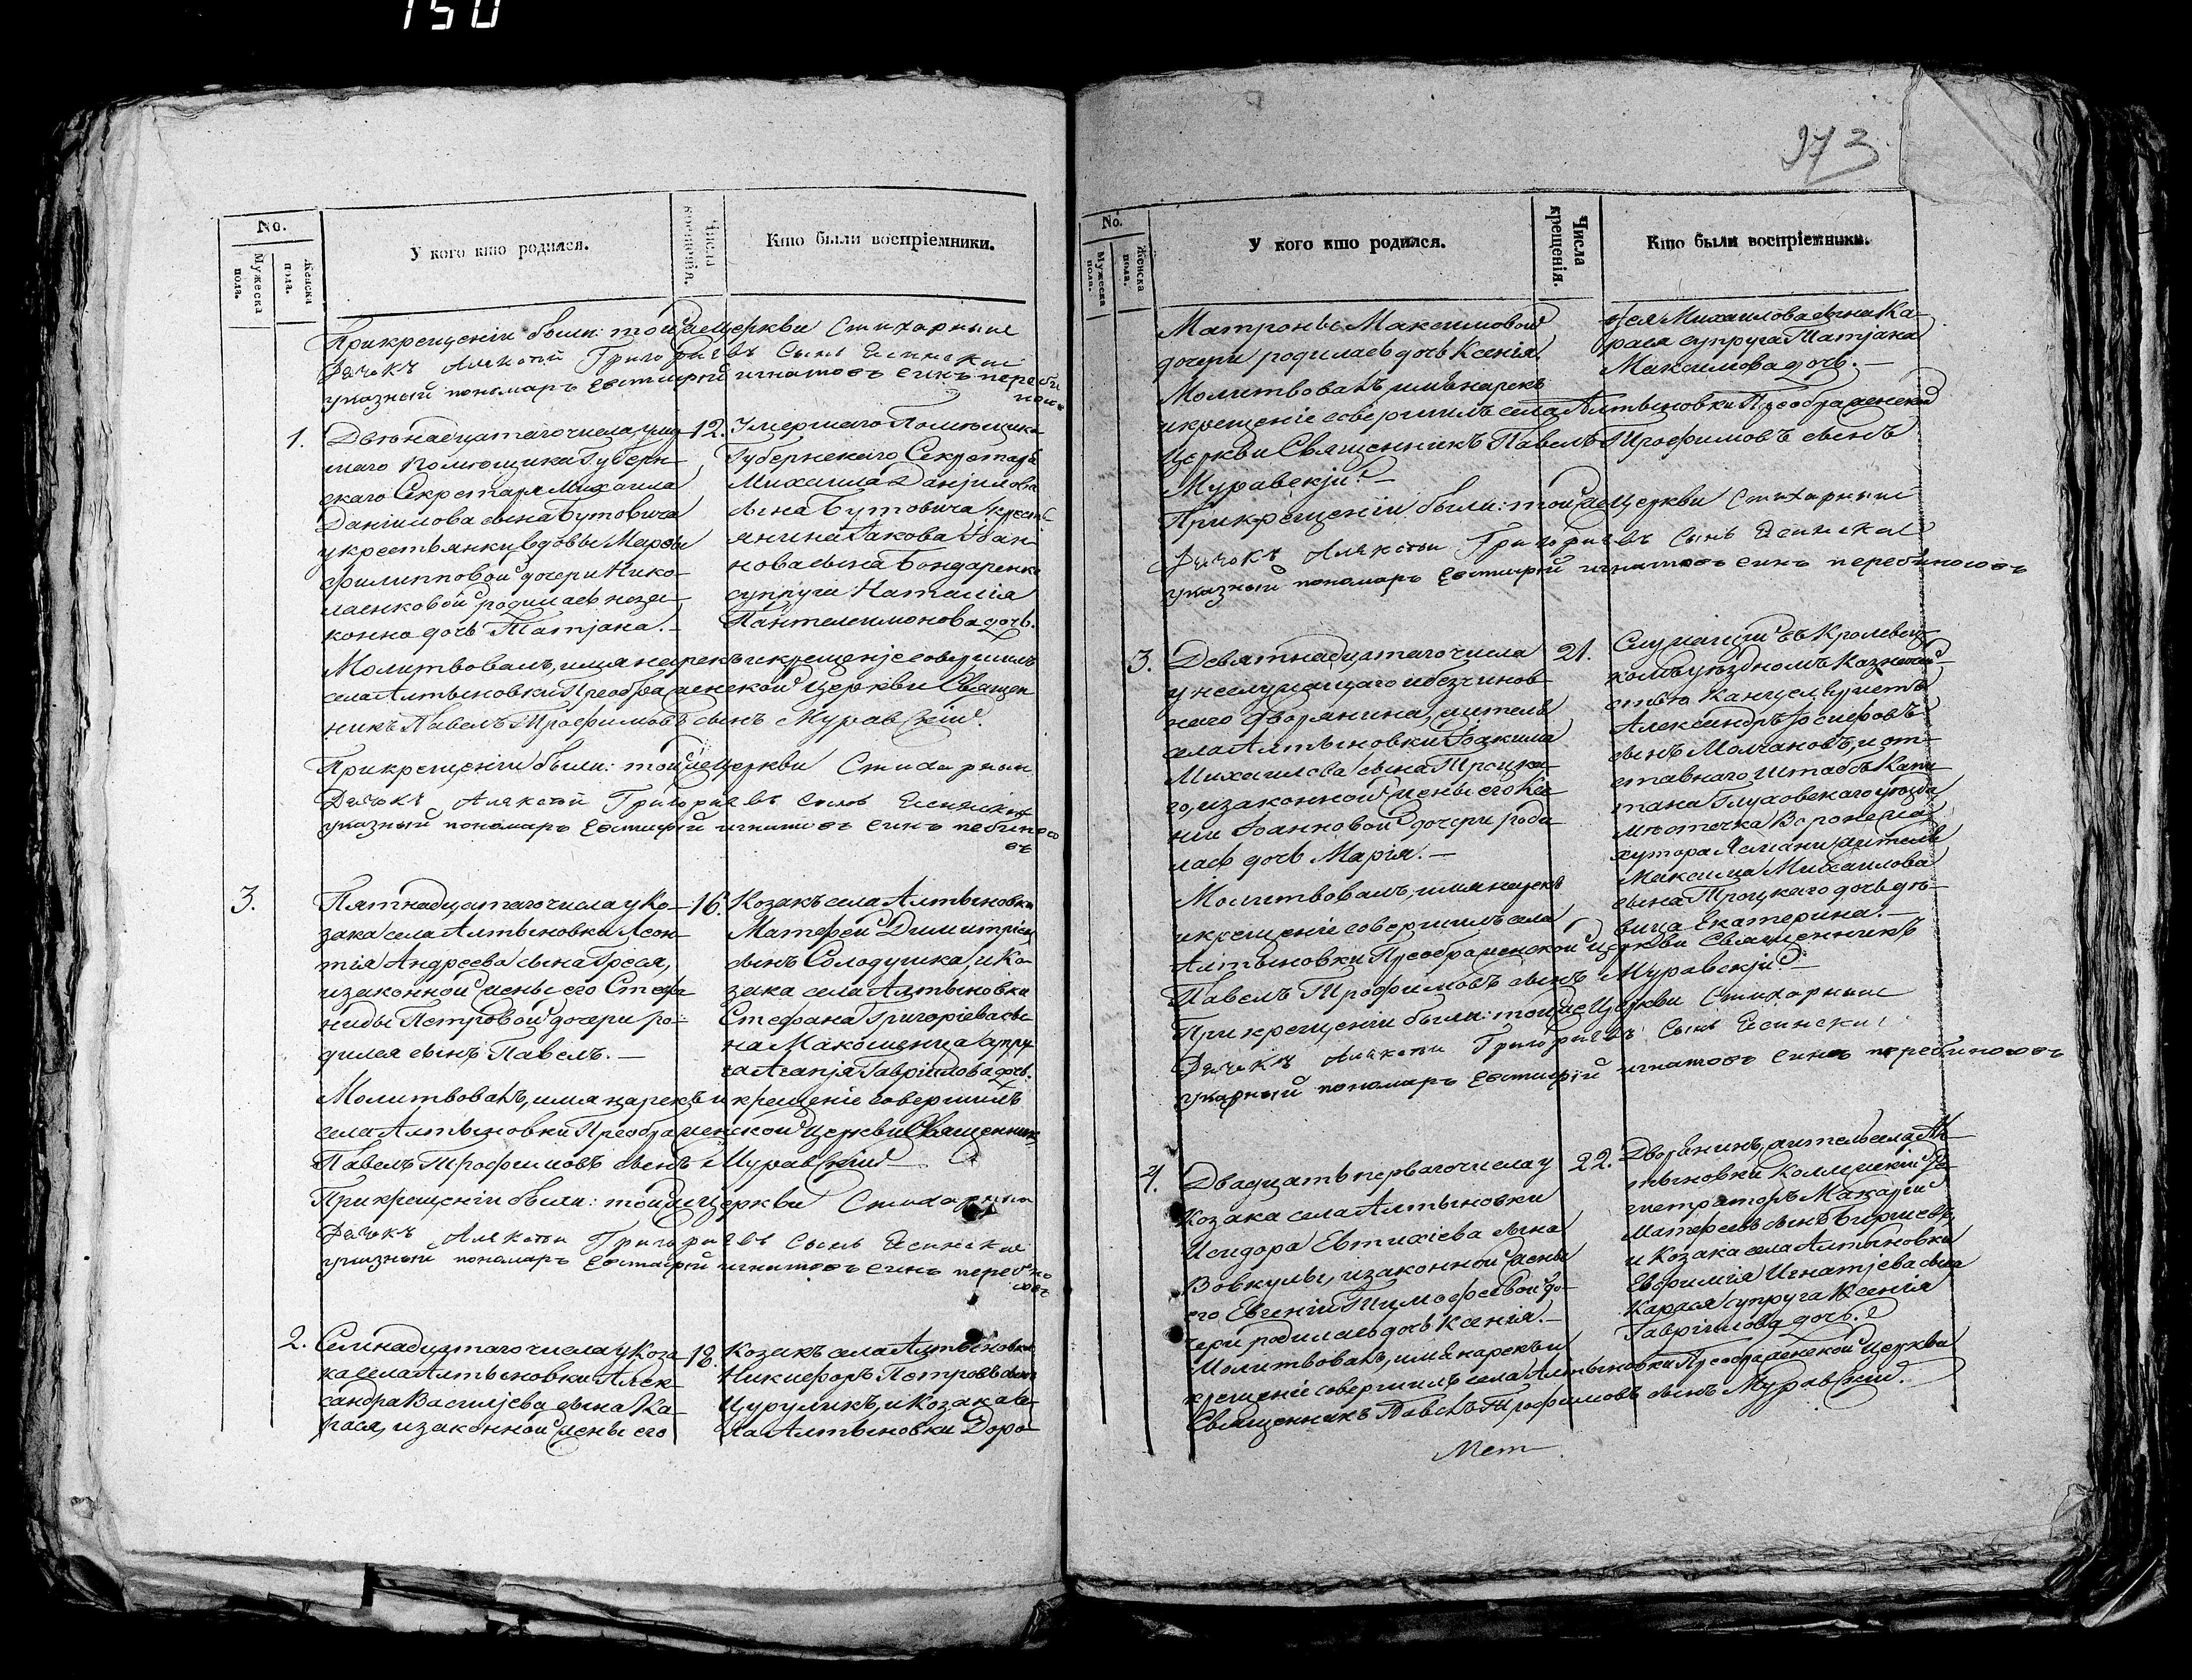 150
No.
Мужеска пола.
Женска пола.
У кого кто родился.
Числа крещенія.
Кто были воспріемники.
При крещеніи были: тойже церкви Стихарный
Дячокъ Алексѣй Григорıевъ Сынъ Ясинскій
указный пономаръ Евтифій игнатовъ синъ
1.
Двѣнадцатаго числа умер-
шаго помѣщика Губерн-
скаго Секретаря Михаила
Даніилова сына Бутовича
у крестьянки вдовы Марѳы
Филипповой дочери Нико-
лаенковой родилась неза-
конно дочь Татіана.—
12.
Умершаго Помѣщика
Губернскаго Секретаря
Михаила Даніилова
сына Бутовича крестья-
янина Іакова Іоан-
нова сына Бондаренка
супруга Наталія
Пантелеимонова дочь.
Молитвовалъ, имя нарекъ и крещеніе совершилъ
села Алтыновки Преображенской Церкви Священ
никъ Павелъ Трофимовъ сынъ Муравскій.
При крещеніи были: тойже церкви Стихарный
Дячокъ Алексѣй Григорıевъ сынъ Ясинскій
указный пономаръ Евтифій игнатовъ синъ
3.
Пятнадцатаго числа у Ко-
зака села Алтыновки Леон-
тія Андреева сына Греся,
и законной жены его Стефа-
ниды Петровой дочери ро-
дился сынъ Павелъ.—
16.
Козакъ села Алтыновки
Матфей Димитріевъ
сынъ Солодушка, и Ко-
зака села Алтыновки
Стефана Григоріева сы-
на Макошенца супру-
га Агапія Гавріилова дочь.
Молитвовалъ, имя нарекъ и крещеніе совершилъ
села Алтыновки Преображенской Церкви Священникъ
Павелъ Трофимовъ сынъ Муравскій
При крещеніи были: тойже церкви Стихарный
Дячокъ Алексѣй Григорıевъ Сынъ Ясинскій
указный пономаръ Евтифій игнатовъ синъ
2.
Семнадцатаго числа у Коза-
ка села Алтыновки Алек-
сандра Василіева сына Ка-
рася, и законной жены его
18.
Козакъ села Алтыновки
Никифоръ Петровъ сынъ
Цуруликъ, и Козака се-
ла Алтыновки Доро-
973
No.
Мужеска пола.
Женска пола.
У кого кто родился.
Числа крещенія.
Кто были воспріемники.
Матроны Максимовой
дочери родилась дочь Ксенія.
ѳея Михаилова сына Ка-
рася супруга Татіана
Максимова дочь.—
Молитвовалъ, имя нарекъ
и крещеніе совершилъ села Алтыновки Преображенской
Церкви Священникъ Павелъ Трофимовъ сынъ
Муравскій.—
При крещеніи были: тойже Церкви Стихарный
Дячокъ Алексѣй Григорıевъ Сынъ Ясинскій
указный пономаръ Евтифій игнатовъ синъ перебиносовъ
3.
Девятнадцатаго числа
у неслужащаго и безчинов-
наго дворянина, жителя
села Алтыновки Іоакима
Михаилова сына Троцка-
го, и законной жены его Ксе-
ніи Іоанновой дочери роди-
лась дочь Марія.—
21.
Служащій въ Кролевец-
комъ уѣздномъ Казначей-
ствѣ Канцеляристъ
Александръ Іосифовъ
сынъ Молчановъ, и от-
ставнаго Штабсъ Капи
тана Глуховскаго уѣзда
мѣстечка Воронежа
хутора Ясмани жителя
Максима Михаилова
сына Троцкаго дочь дѣ-
вица Екатерина.—
Молитвовалъ, имя нарекъ
и крещеніе совершилъ села
Алтыновки Преображенской церкви Священникъ
Павелъ Трофимовъ сынъ Муравскій.—
При крещеніи были: тойже Церкви Стихарный
Дячокъ Алексѣй Григорıевъ Сынъ Ясинскій
указный пономаръ Евтифій игнатовъ синъ перебиносовъ
4.
Двадцать перваго числа у
Козака села Алтыновки
Исидора Евтихіева сына
Вовкулы, и законной жены
его Евгеніи Тимофеевой до-
чери родилась дочь Ксенія.—
22.
Дворянинъ, житель села Ал-
тыновки Коллежскій Ре-
гистраторъ Макарій
Матфеевъ сынъ
и Козака села Алтыновки
Евфимія Игнатіева сына
Карася супруга Ксенія
Гавріилова дочь.
Молитвовалъ, имя нарекъ и
крещеніе совершилъ села Алтыновки Преображенской Церкви
Священникъ Павелъ Трофимовъ сынъ Муравскій.
Мет